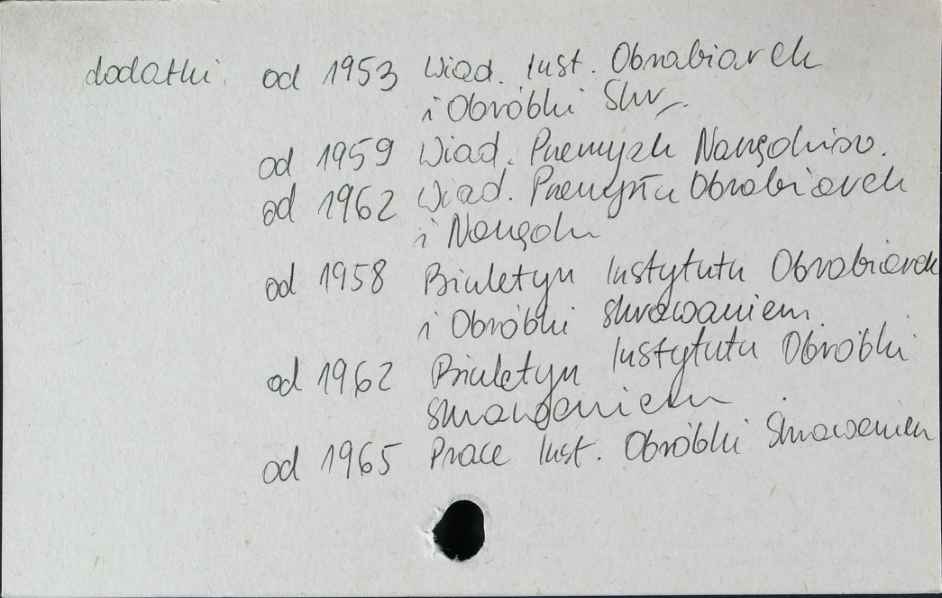 dodatki. od 1953 Wiad. Inst. Obrabiarek
i Obróbki Skr.
od 1959 Wiad. Przemysłu Narzędziow.
od 1962 Wiad. Przemysłu Obrabiarek
i Narzędzi
od 1958 Biuletyn Instytutu Obrabiarek
i Obróbki skrawaniem
od 1962 Biuletyn Instytutu Obróbki
skrawaniem
od 1965 Prace Inst. Obróbki Skrawaniem